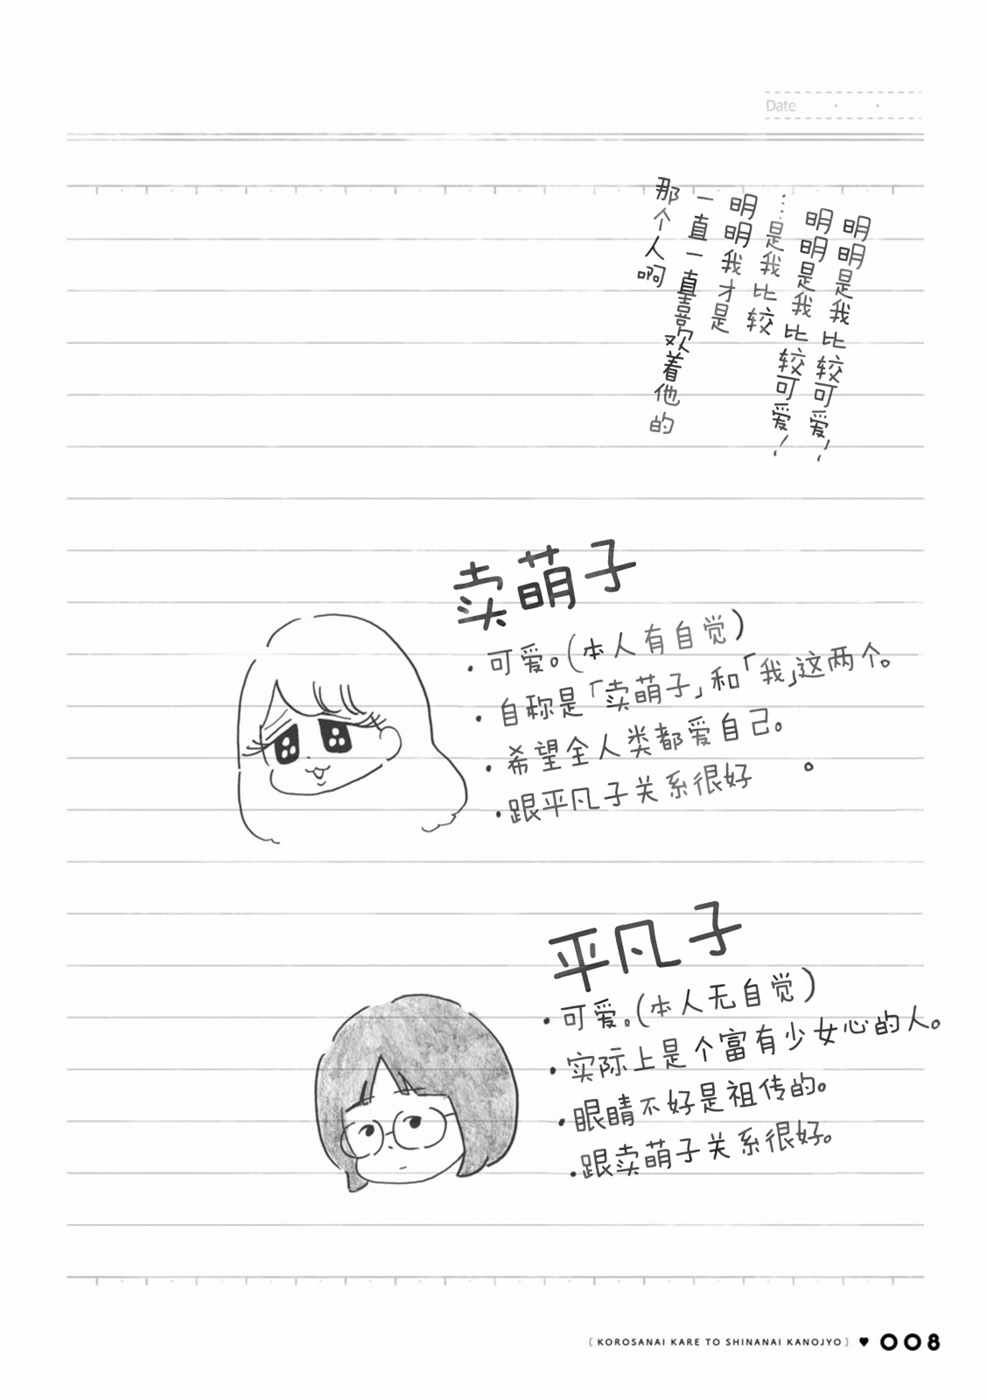 Date
明明是我比较可爱！
明明是我比较可爱！
…是我比较
明明我才是
一直一直喜欢着他的
那个人啊
卖萌子
・可爱。(本人有自觉)
・自称是「卖萌子」和「我」这两个。
・希望全人类都爱自己。
・跟平凡子关系很好。
平凡子
・可爱。(本人无自觉)
・实际上是个富有少女心的人。
・眼睛不好是祖传的。
・跟卖萌子关系很好。
[ KOROSANAI KARE TO SHINANAI KANOJYO ] ♥ 008